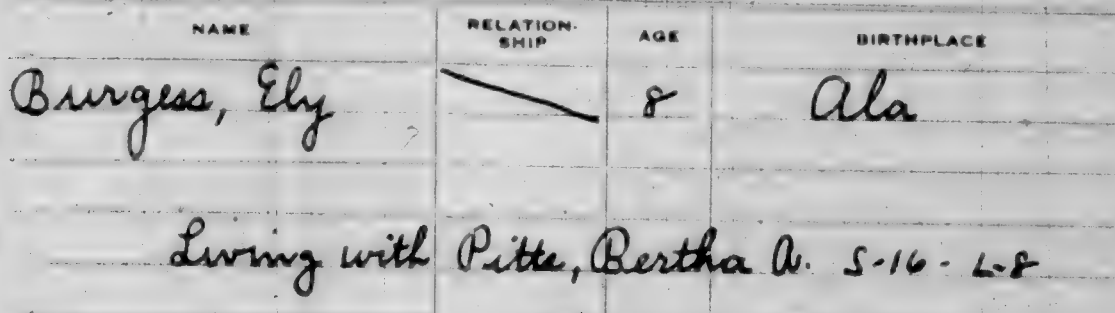 NAME RELATION-SHIP AGE BIRTHPLACE
Burgess, Ely 8 Ala
Living with Pitts, Bertha A. S-16 - L-8